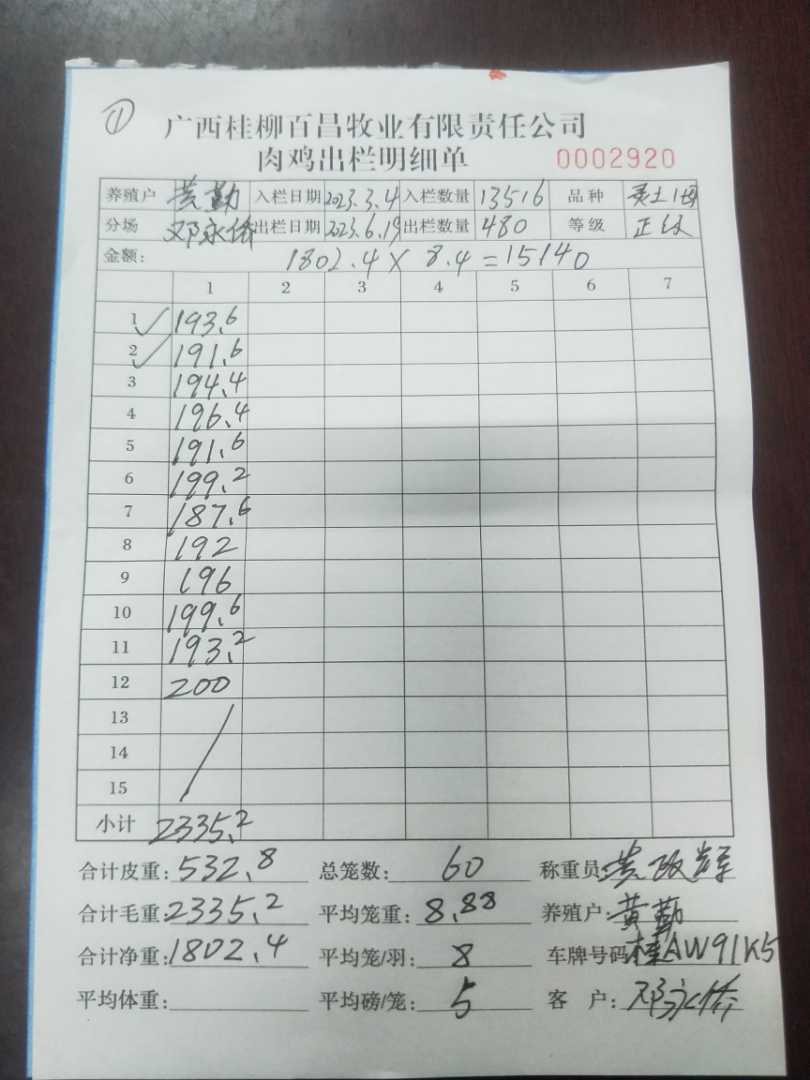 ①
广西桂柳百昌牧业有限责任公司
肉鸡出栏明细单 0002920
养殖户 黄勤 入栏日期 2023.3.4 入栏数量 13516 品种 灵土1母
分场 邓永侨 出栏日期 2023.6.19 出栏数量 480 等级 正级
金额: 1802.4 × 8.4 = 15140
1 2 3 4 5 6 7
1 193.6
2 191.6
3 194.4
4 196.4
5 191.6
6 199.2
7 187.6
8 192
9 196
10 199.6
11 193.2
12 200
13
14
15
小计 2335.2
合计皮重: 532.8 总笼数: 60 称重员
合计毛重: 2335.2 平均笼重: 8.88 养殖户: 黄勤
合计净重: 1802.4 平均笼/羽: 8 车牌号码 桂AW91K5
平均体重: 平均磅/笼: 5 客 户: 邓永侨